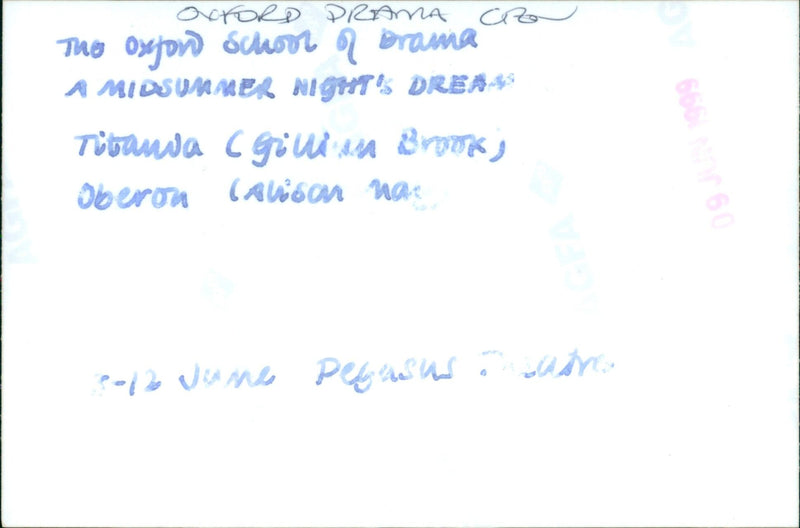 OXFORD DRAMA
The Oxford School of Drama
A MIDSUMMER NIGHT'S DREAM
Titania (Gillian Brook)
Oberon (Alison
-12 June Pegasus Theatre
09 JUN 1999
AGFA
AGFA